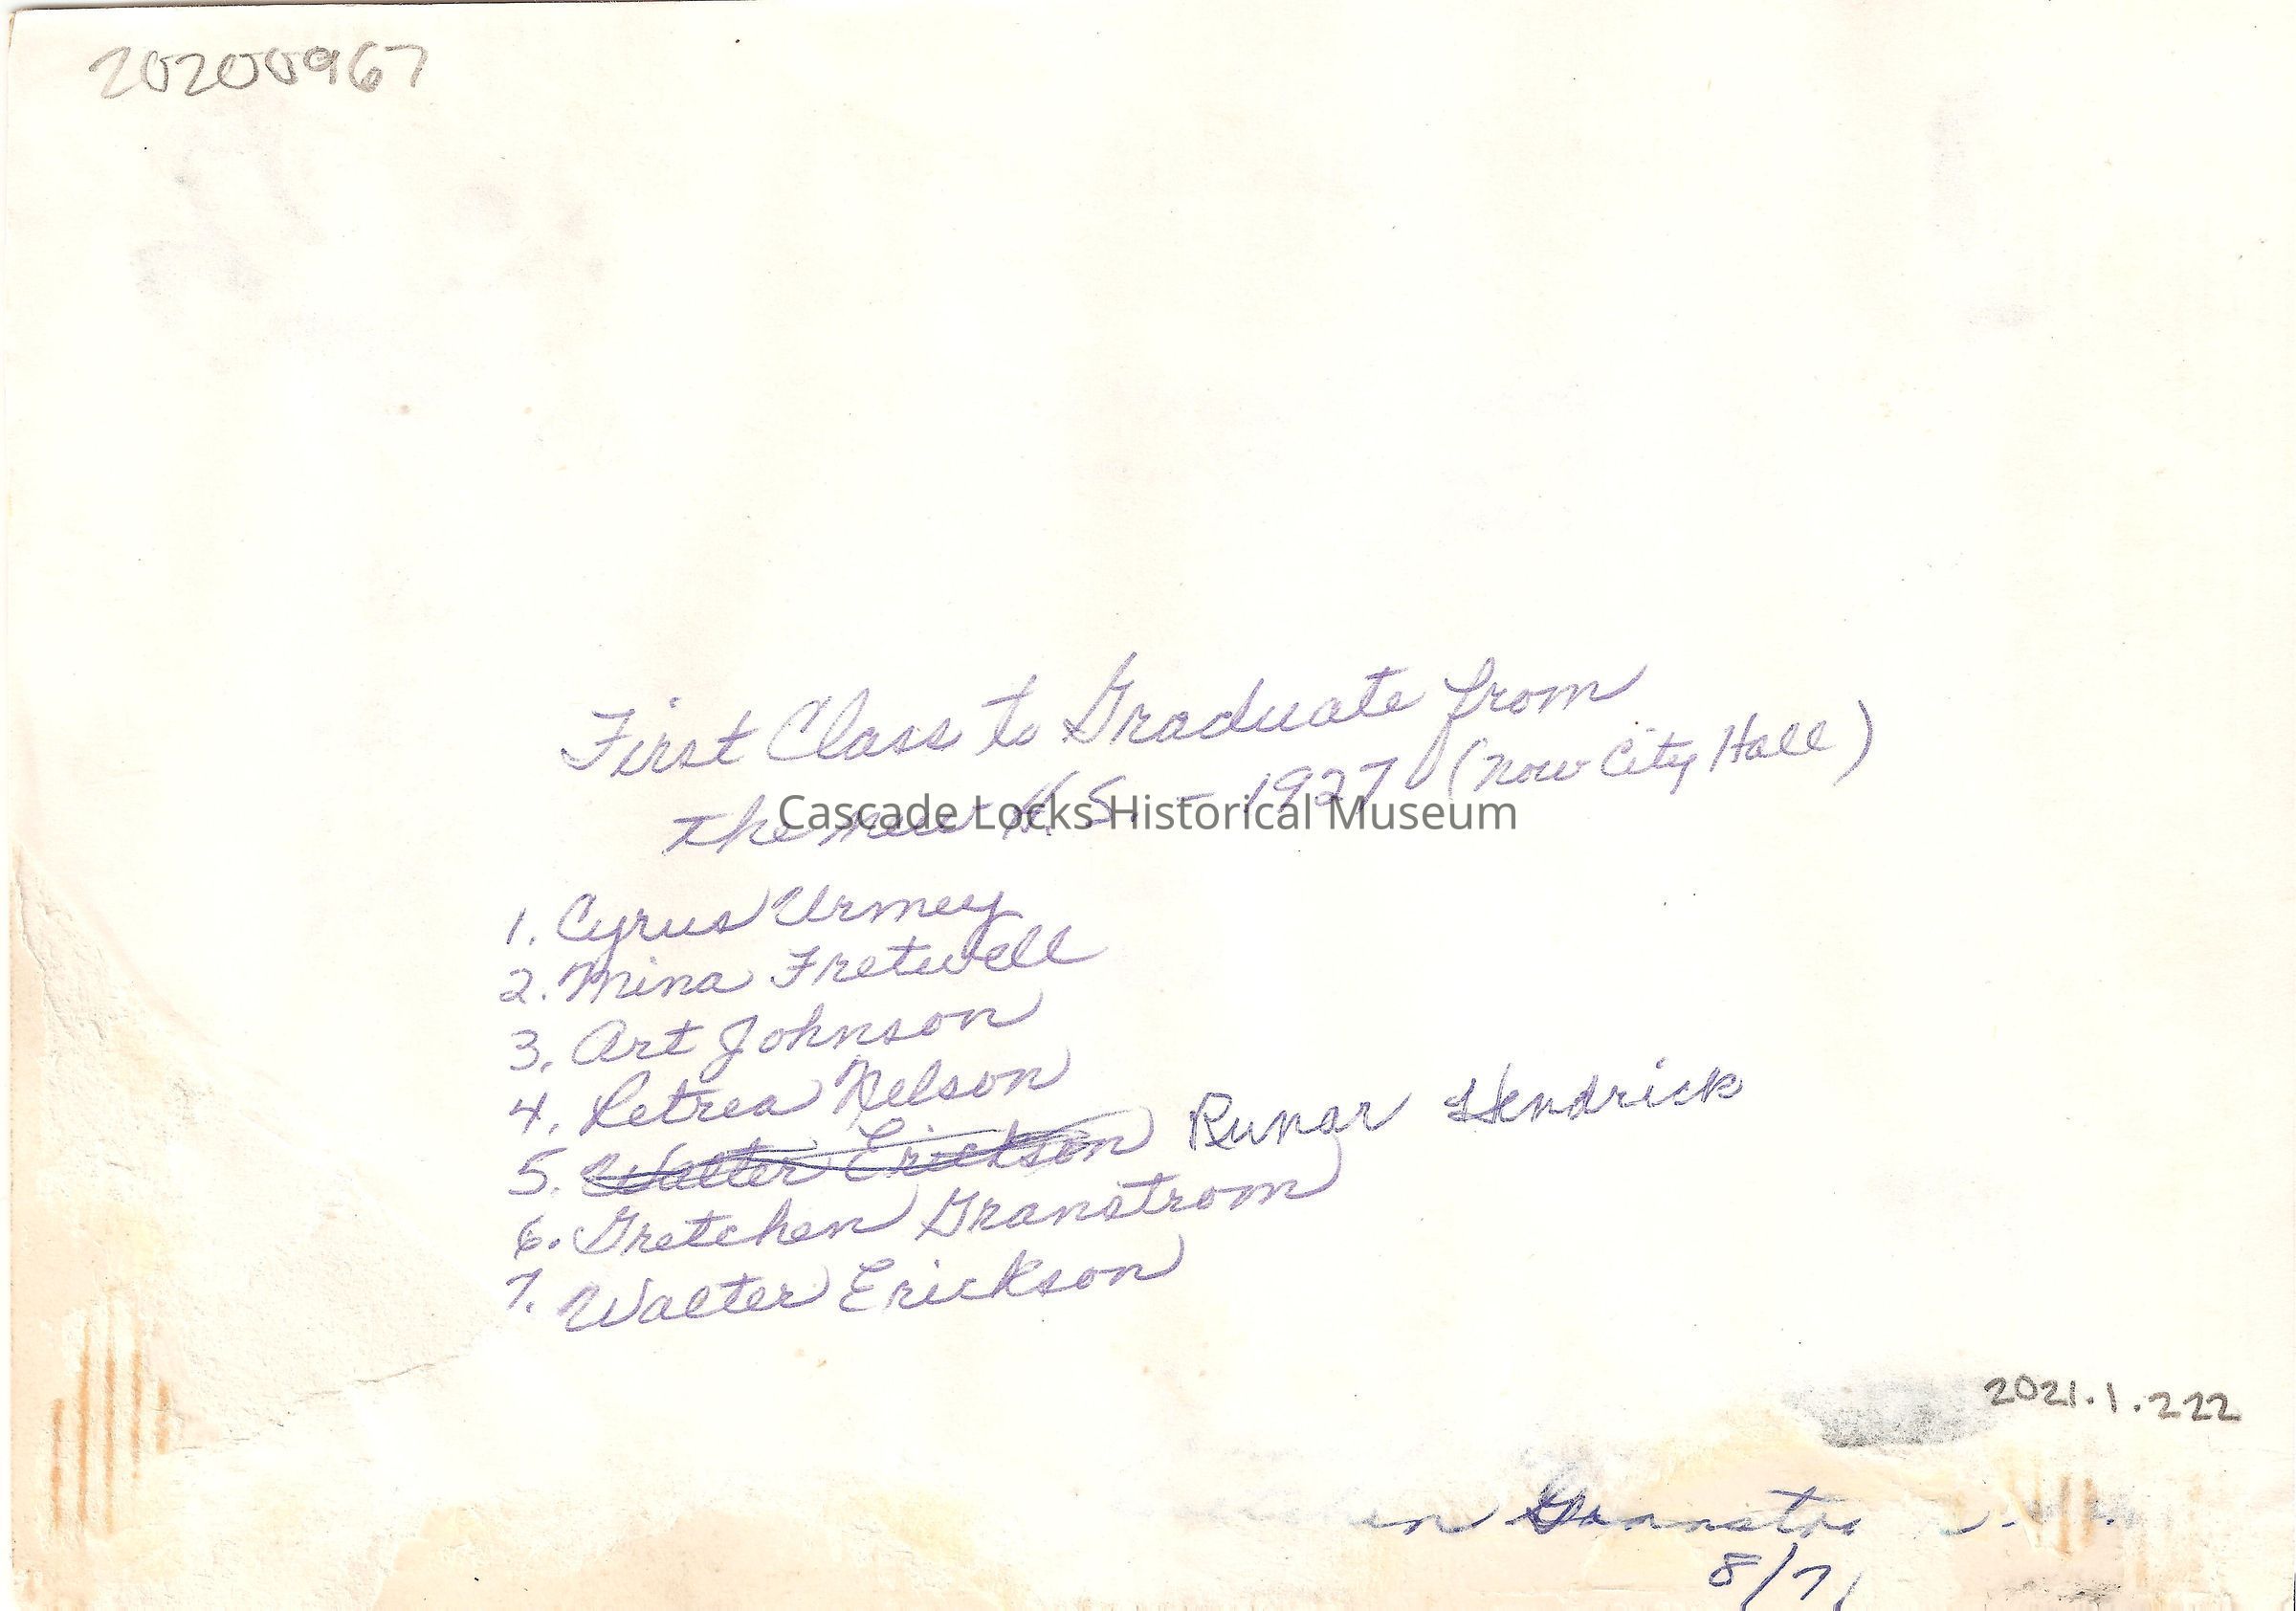 20200967
First Class to Graduate from
the new H.S. - 1927 (now City Hall)
Cascade Locks Historical Museum
1. Cyrus Urmey
2. Mina Fretwell
3. Art Johnson
4. Petrea Nelson
5. Walter Erickson Runar Hendrick
6. Gretchen Granstrom
7. Walter Erickson
2021.1.222
8/71